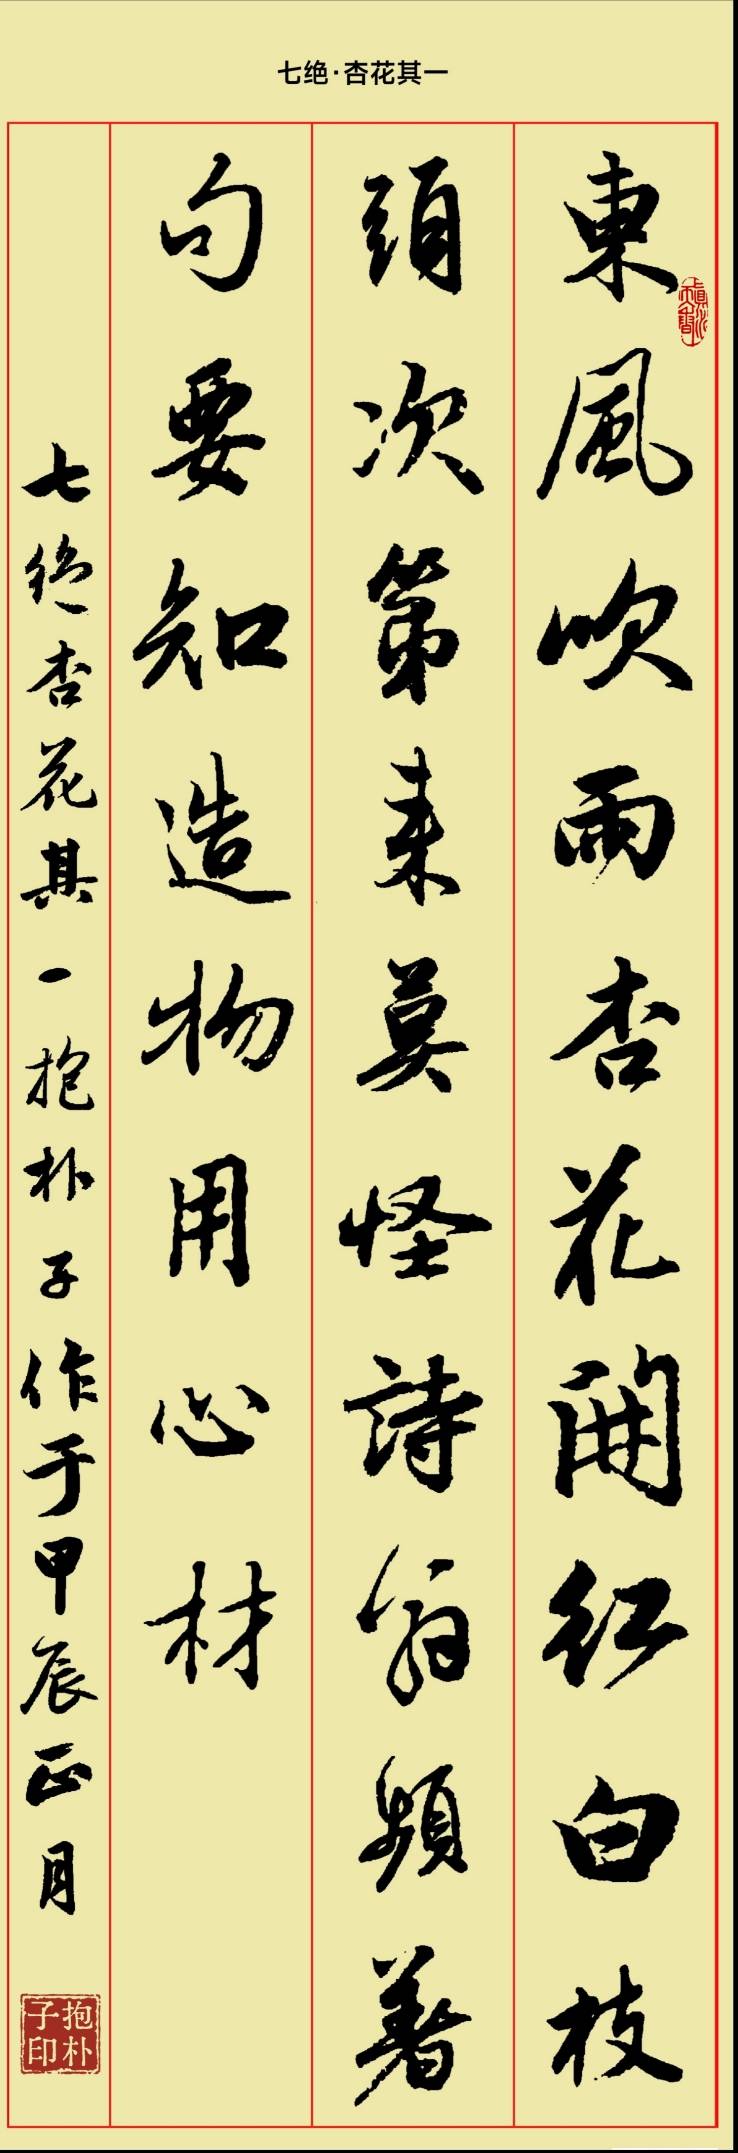 七绝·杏花其一
東風吹雨杏花開紅白枝
頭次第来莫怪詩翁頻著
句要知造物用心材
七绝杏花其一抱朴子作于甲辰正月
抱朴子印